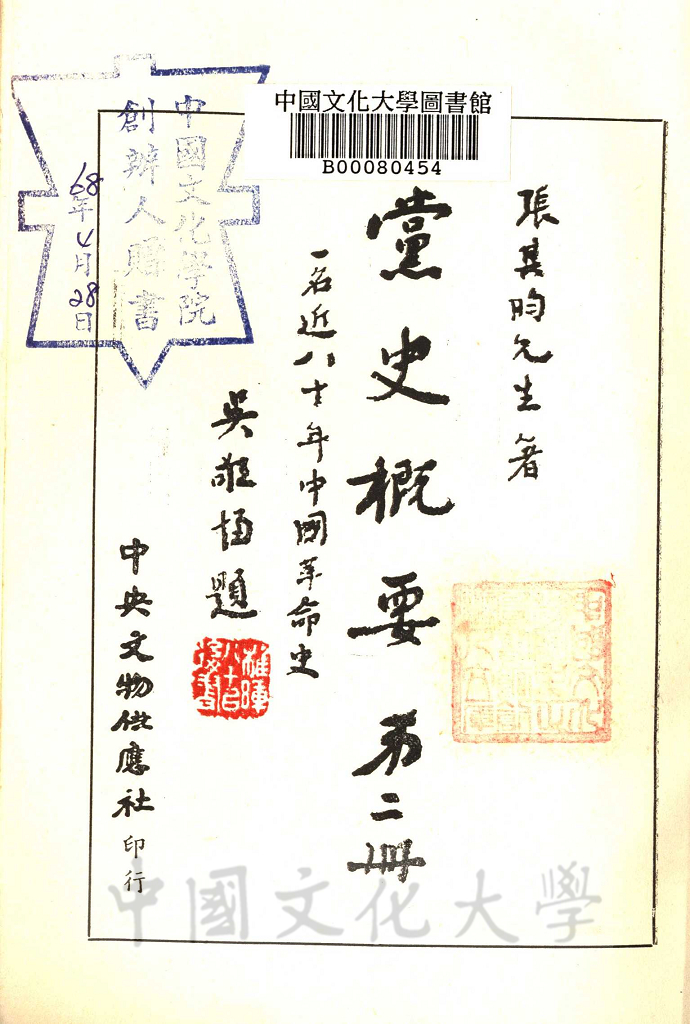 中國文化大學圖書館
B00080454
張其昀先生著
黨史概要 第二冊
一名近八十年中國革命史
吳敬恆題
中央文物供應社印行
中國文化學院
創辦人贈書
68年4月28日
中國文化大學